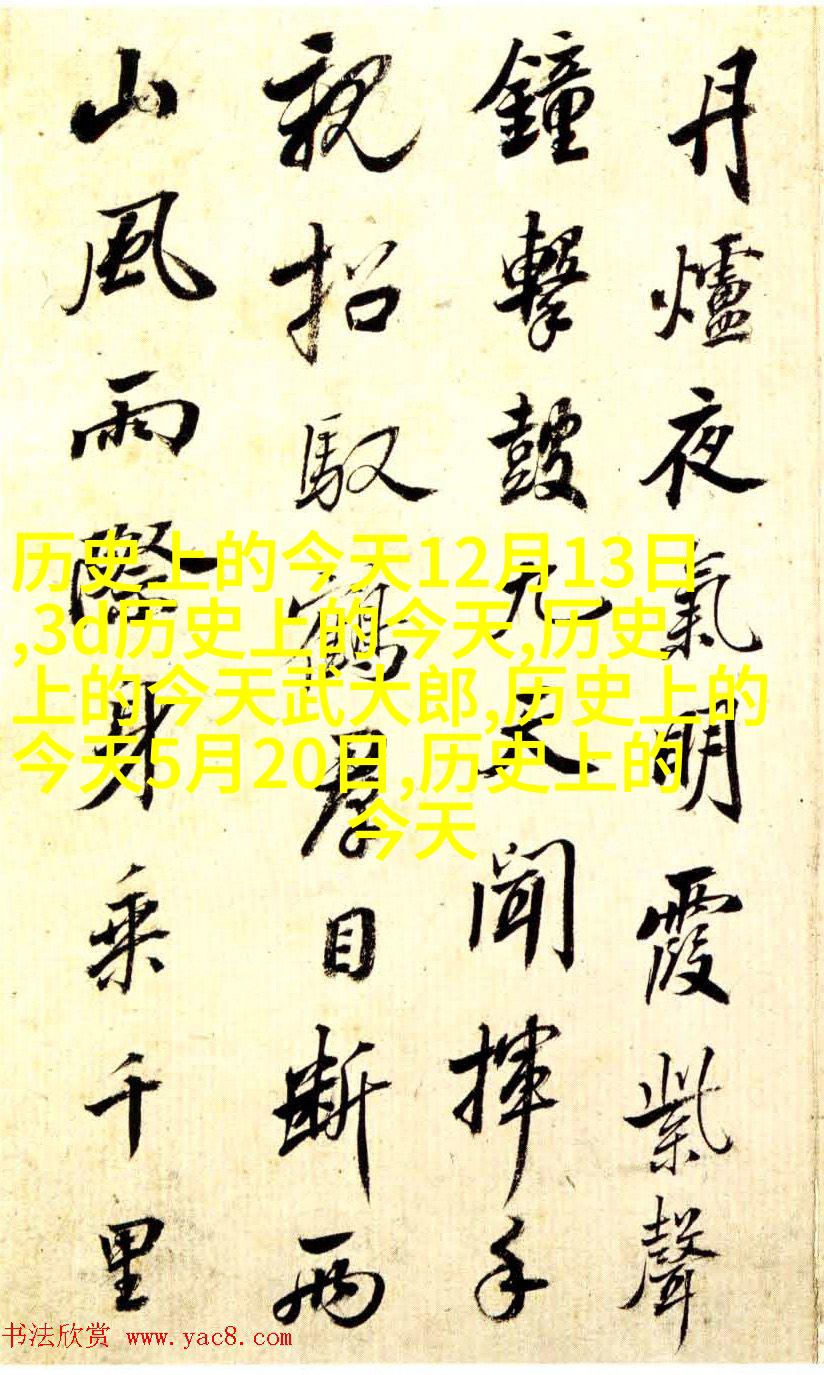 丹爐夜氣明霞紫聲
鐘擊鼓九天聞揮手
親招馭鶴羣目断两
山風雨際身乘千里
历史上的今天12月13日
,3d历史上的今天,历史
上的今天武大郎,历史上的
今天5月20日,历史上的
今天
书法欣赏 www.yac8.com